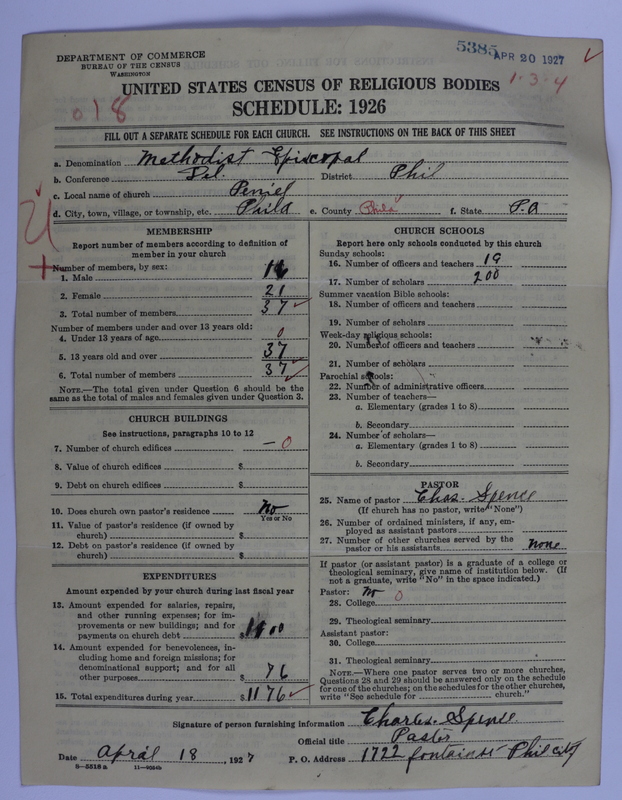 5385 APR 20 1927
1-3-4
DEPARTMENT OF COMMERCE
BUREAU OF THE CENSUS
WASHINGTON
018
UNITED STATES CENSUS OF RELIGIOUS BODIES
SCHEDULE: 1926
FILL OUT A SEPARATE SCHEDULE FOR EACH CHURCH. SEE INSTRUCTIONS ON THE BACK OF THIS SHEET
a. Denomination Methodist Episcopal
b. Conference Del. District Phil
c. Local name of church Peniel
d. City, town, village, or township, etc. Phila e. County Phila f. State P.a
MEMBERSHIP
Report number of members according to definition of
member in your church
Number of members, by sex:
1. Male 16
2. Female 21
3. Total number of members 37
Number of members under and over 13 years old:
4. Under 13 years of age 0
5. 13 years old and over 37
6. Total number of members 37
NOTE.—The total given under Question 6 should be
same as the total of males and females given under Question 3.
CHURCH BUILDINGS
See instructions, paragraphs 10 to 12
7. Number of church edifices — 0
8. Value of church edifices $
9. Debt on church edifices $
10. Does church own pastor's residence No
Yes or No
11. Value of pastor's residence (if owned by
church) $
12. Debt on pastor's residence (if owned by
church) $
EXPENDITURES
Amount expended by your church during last fiscal year
13. Amount expended for salaries, repairs,
and other running expenses; for im-
provements or new buildings; and for
payments on church debt $1100
14. Amount expended for benevolences, in-
cluding home and foreign missions; for
denominational support; and for all
other purposes $ 76
15. Total expenditures during year $1176
CHURCH SCHOOLS
Report here only schools conducted by this church
Sunday schools:
16. Number of officers and teachers 19
17. Number of scholars 200
Summer vacation Bible schools:
18. Number of officers and teachers
19. Number of scholars
Week-day religious schools:
20. Number of officers and teachers
21. Number of scholars
Parochial schools:
22. Number of administrative officers
23. Number of teachers—
a. Elementary (grades 1 to 8)
b. Secondary
24. Number of scholars—
a. Elementary (grades 1 to 8)
b. Secondary
PASTOR
25. Name of pastor Chas. Spence
(If church has no pastor, write "None")
26. Number of ordained ministers, if any, em-
ployed as assistant pastors
27. Number of other churches served by the
pastor or his assistants none
If pastor (or assistant pastor) is a graduate of a college or
theological seminary, give name of institution below. (If
not a graduate, write "No" in the space indicated.)
Pastor: No 0
28. College
29. Theological seminary
Assistant pastor:
30. College
31. Theological seminary
NOTE.—Where one pastor serves two or more churches,
Questions 28 and 29 should be answered only on the schedule
for one of the churches; on the schedules for the other churches,
write "See schedule for church."
Signature of person furnishing information Charles Spence
Official title Pastor
Date April 18, 1927 P. O. Address 1722 Phil city
8—5518 a